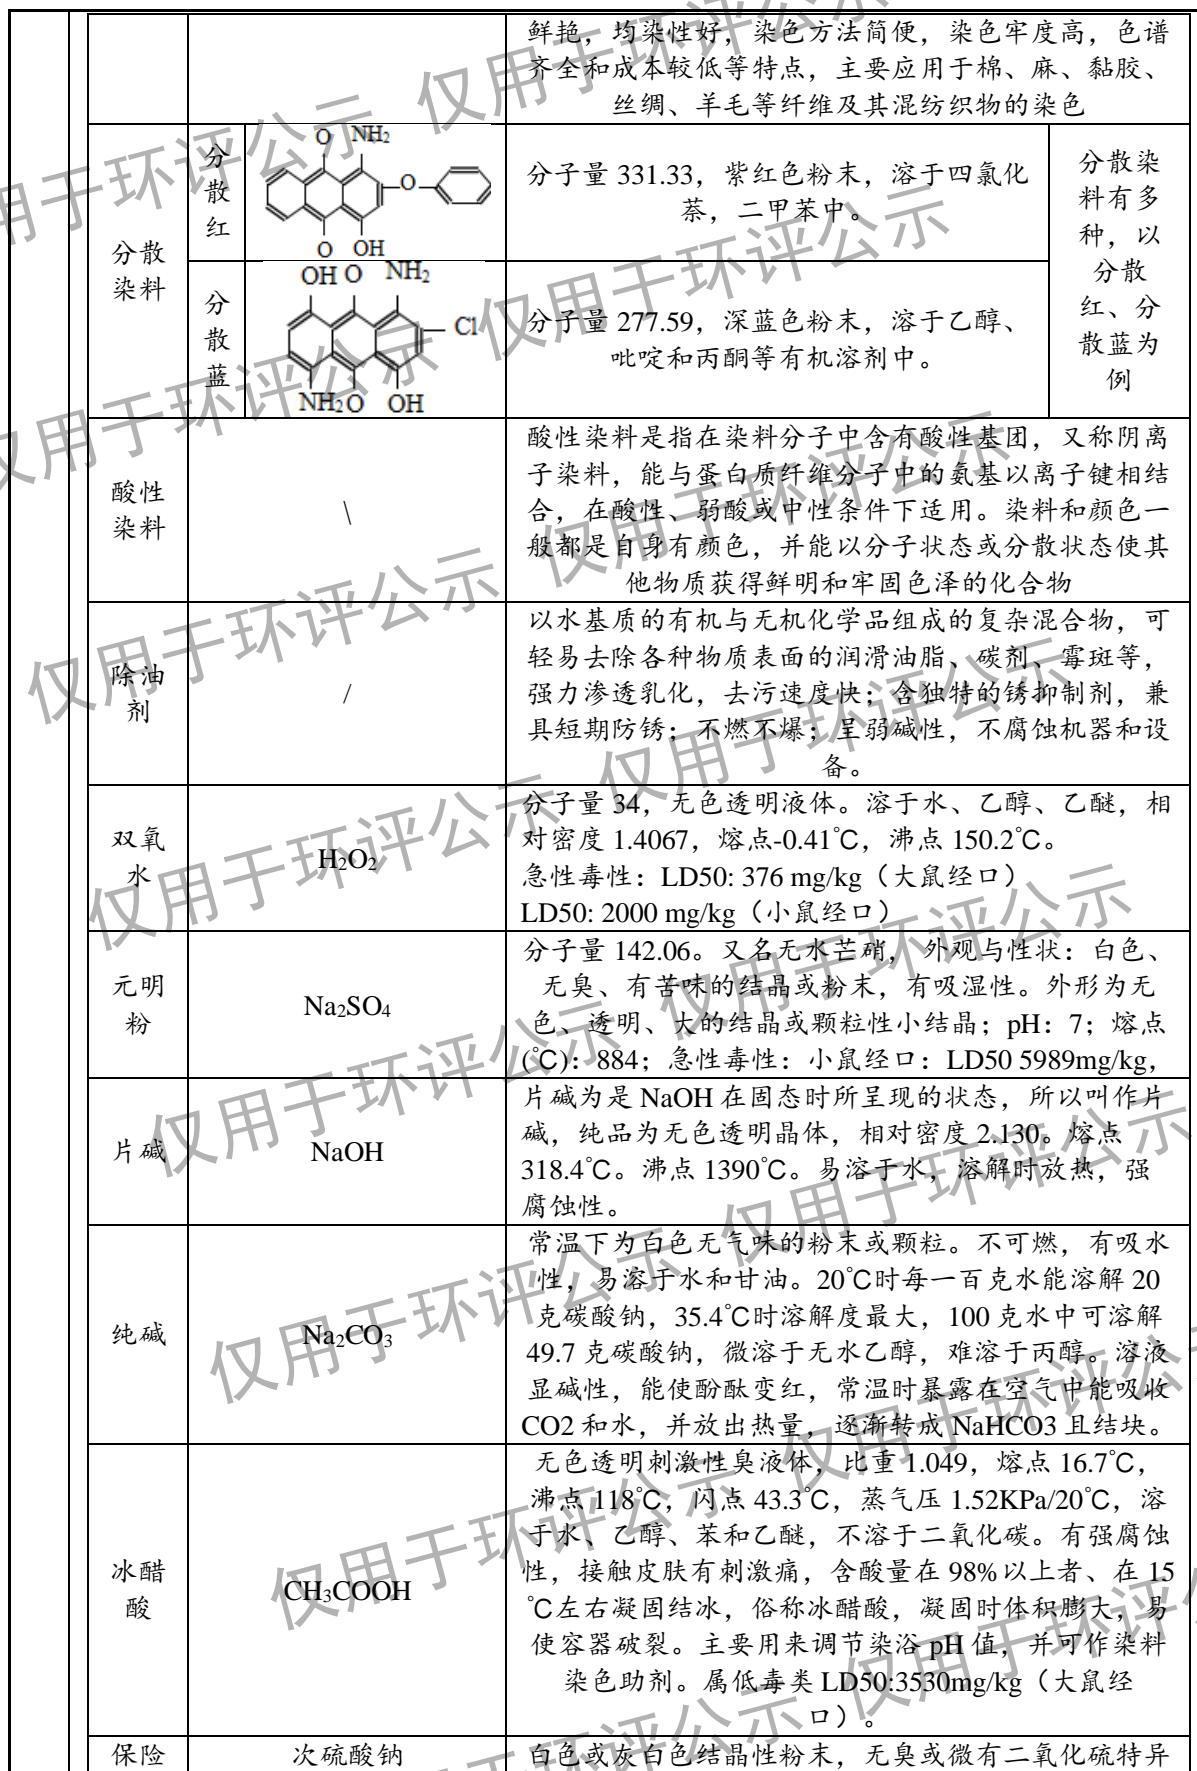 鲜艳，均染性好，染色方法简便，染色牢度高，色谱
齐全和成本较低等特点，主要应用于棉、麻、黏胶、
丝绸、羊毛等纤维及其混纺织物的染色
分散
染料
分
散
红
O NH2
O
O OH
分子量 331.33，紫红色粉末，溶于四氯化
萘，二甲苯中。
分散染
料有多
种，以
分散
红、分
散蓝为
例
分
散
蓝
OH O NH2
Cl
NH2 O OH
分子量 277.59，深蓝色粉末，溶于乙醇、
吡啶和丙酮等有机溶剂中。
酸性
染料
\
酸性染料是指在染料分子中含有酸性基团，又称阴离
子染料，能与蛋白质纤维分子中的氨基以离子键相结
合，在酸性、弱酸或中性条件下适用。染料和颜色一
般都是自身有颜色，并能以分子状态或分散状态使其
他物质获得鲜明和牢固色泽的化合物
除油
剂
/
以水基质的有机与无机化学品组成的复杂混合物，可
轻易去除各种物质表面的润滑油脂、碳剂、霉斑等，
强力渗透乳化，去污速度快；含独特的锈抑制剂，兼
具短期防锈；不燃不爆；呈弱碱性，不腐蚀机器和设
备。
双氧
水
H2O2
分子量 34，无色透明液体。溶于水、乙醇、乙醚，相
对密度 1.4067，熔点-0.41℃，沸点 150.2℃。
急性毒性：LD50: 376 mg/kg（大鼠经口）
LD50: 2000 mg/kg（小鼠经口）
元明
粉
Na2SO4
分子量 142.06。又名无水芒硝， 外观与性状：白色、
无臭、有苦味的结晶或粉末，有吸湿性。外形为无
色、透明、大的结晶或颗粒性小结晶；pH：7；熔点
(℃)：884；急性毒性：小鼠经口：LD50 5989mg/kg，
片碱
NaOH
片碱为是 NaOH 在固态时所呈现的状态，所以叫作片
碱，纯品为无色透明晶体，相对密度 2.130。熔点
318.4℃。沸点 1390℃。易溶于水，溶解时放热，强
腐蚀性。
纯碱
Na2CO3
常温下为白色无气味的粉末或颗粒。不可燃，有吸水
性，易溶于水和甘油。20℃时每一百克水能溶解 20
克碳酸钠，35.4℃时溶解度最大，100 克水中可溶解
49.7 克碳酸钠，微溶于无水乙醇，难溶于丙醇。溶液
显碱性，能使酚酞变红，常温时暴露在空气中能吸收
CO2 和水，并放出热量，逐渐转成 NaHCO3 且结块。
冰醋
酸
CH3COOH
无色透明刺激性臭液体，比重 1.049，熔点 16.7℃，
沸点 118℃，闪点 43.3℃，蒸气压 1.52KPa/20℃，溶
于水、乙醇、苯和乙醚，不溶于二氧化碳。有强腐蚀
性，接触皮肤有刺激痛，含酸量在 98%以上者、在 15
℃左右凝固结冰，俗称冰醋酸，凝固时体积膨大，易
使容器破裂。主要用来调节染浴 pH 值，并可作染料
染色助剂。属低毒类 LD50:3530mg/kg（大鼠经
口）。
保险
次硫酸钠
白色或灰白色结晶性粉末，无臭或微有二氧化硫特异
仅用于环评公示
仅用于环评公示
仅用于环评公示
仅用于环评公示
仅用于环评公示
仅用于环评公示
仅用于环评公示
仅用于环评公示
仅用于环评公示
仅用于环评公示
仅用于环评公示
仅用于环评公示
仅用于环评公示
仅用于环评公示